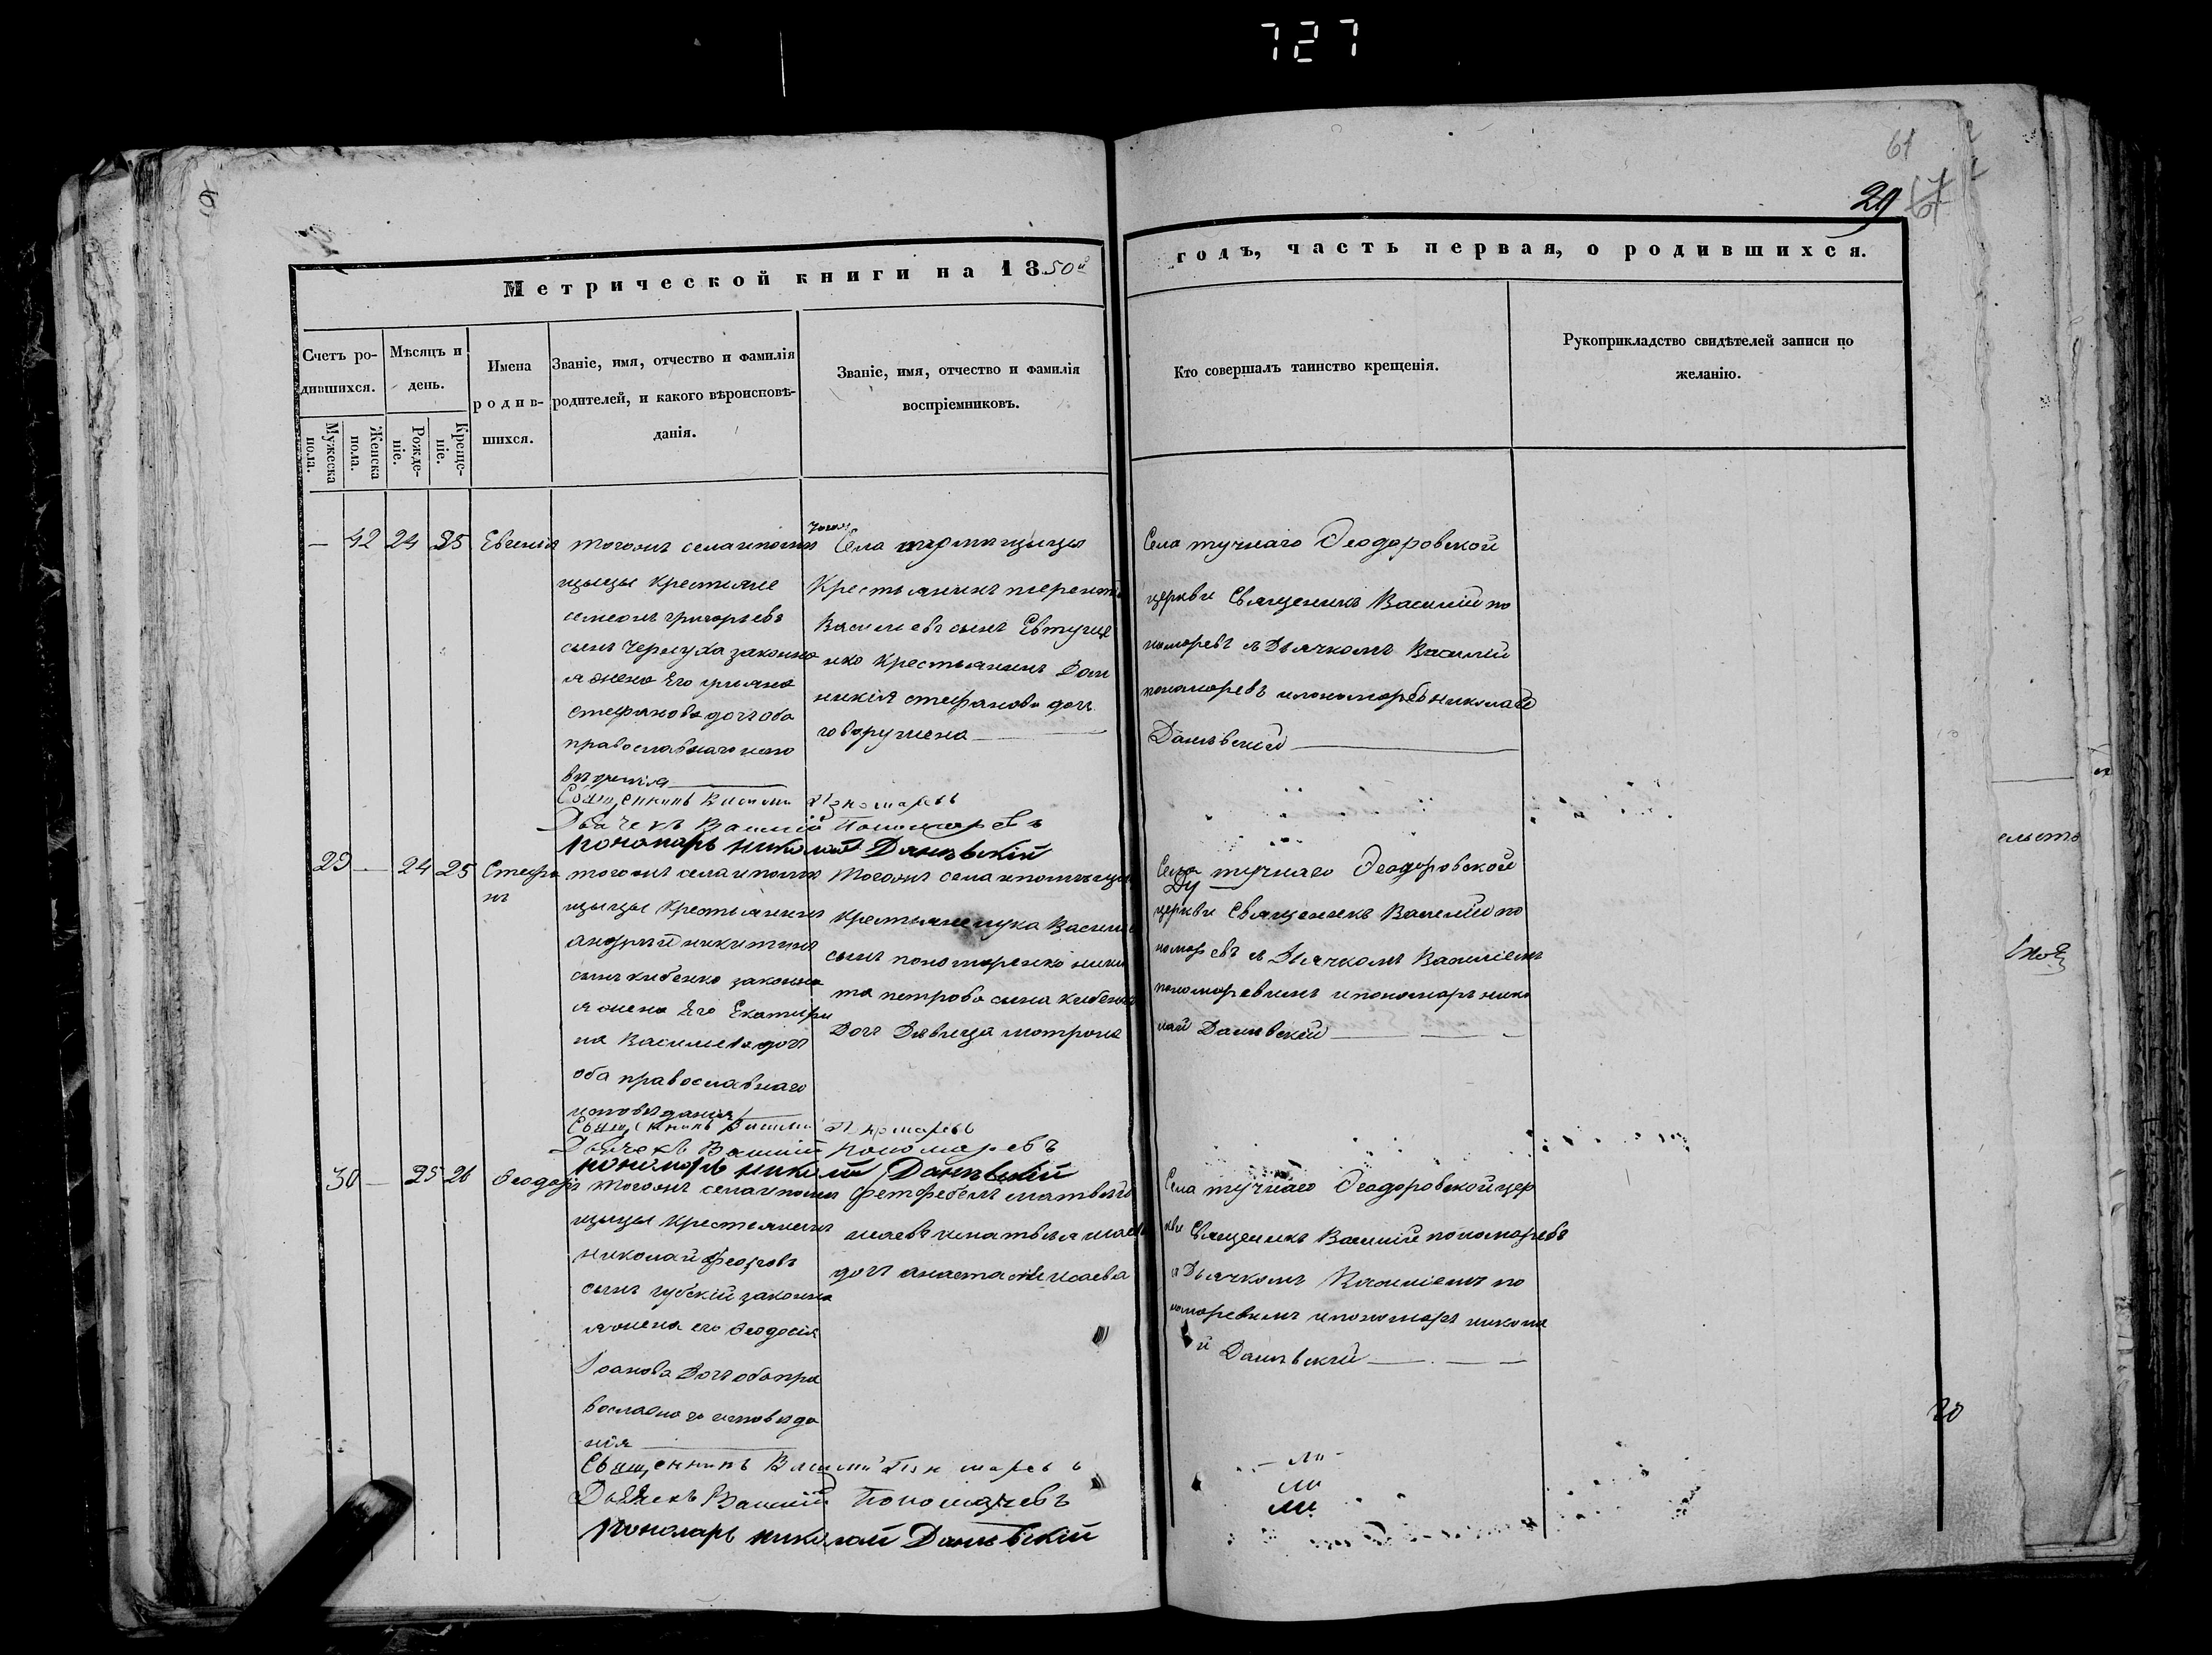 727
61
29 67
Метрической книги на 1850й
годъ, часть первая, о родившихся.
Счетъ ро-
дившихся.
Мужеска
пола.
Женска
пола.
Мѣсяцъ и
день.
Рожде-
ніе.
Креще-
ніе.
Имена
родив-
шихся.
Званіе, имя, отчество и фамилія
родителей, и какого вѣроисповѣ-
данія.
Званіе, имя, отчество и фамилія
воспріемниковъ.
Кто совершалъ таинство крещенія.
Рукоприкладство свидѣтелей записи по
желанію.
— 42 24 25 Евгенія
тогожъ села
щыцы крестьяне
семеонъ григорьевъ
сынъ Чернуха законна
я жена Его
стефанова дочь оба
православнаго испо
вѣденія
Села
Крестьянинъ терентій
Василіевъ сынъ
нко крестьянинъ Дом
никія стефанова доч
Села тучнаго Ѳеодоровской
церкви Священикъ Василій по
номаревъ з Дьячкомъ Василій
пономаревъ и пономарь николай
Данѣвскій
Священникъ Василий Пономаревъ
Дьячекъ Василій Пономаревъ
пономарь николай Данѣвскій
29 — 24 25 Стефа
нъ
тогожъ села
щыцы крестьянинъ
андрей никитинъ
сынъ кибенко законна
я жена Его Екатери
на Василиева доч
оба православнаго
исповѣданія
Тогожъ села
крестьяне лука Василиев
сынъ пономаренко ники
та петрова сына кибенко
Доч Дѣвица мотрона
Села тучнаго Ѳеодоровской
церкви Священикъ Василій по
номаревъ з Дьячкомъ Василіемъ
пономаревымъ и пономарь нико
лай Данѣвскій
Священникъ Василий Пономаревъ
Дьячекъ Василій Пономаревъ
пономарь николай Данѣвскій
30 — 25 26 Ѳеодоръ
тогожъ села
щыцы крестьянинъ
николай
сынъ губскій законна
я жена его Ѳеодосія
Іоанова Доч оба пра
вославнаго исповѣда
нія
доч исаева
Села тучнаго Ѳеодоровской цер
кви Священикъ Василій пономаревъ
з Дьячкомъ Василіемъ по
номаревымъ и пономарь никола
й Данѣвскій
Священникъ Василий Пономаревъ
Дьячекъ Василій Пономаревъ
пономарь николай Данѣвскій